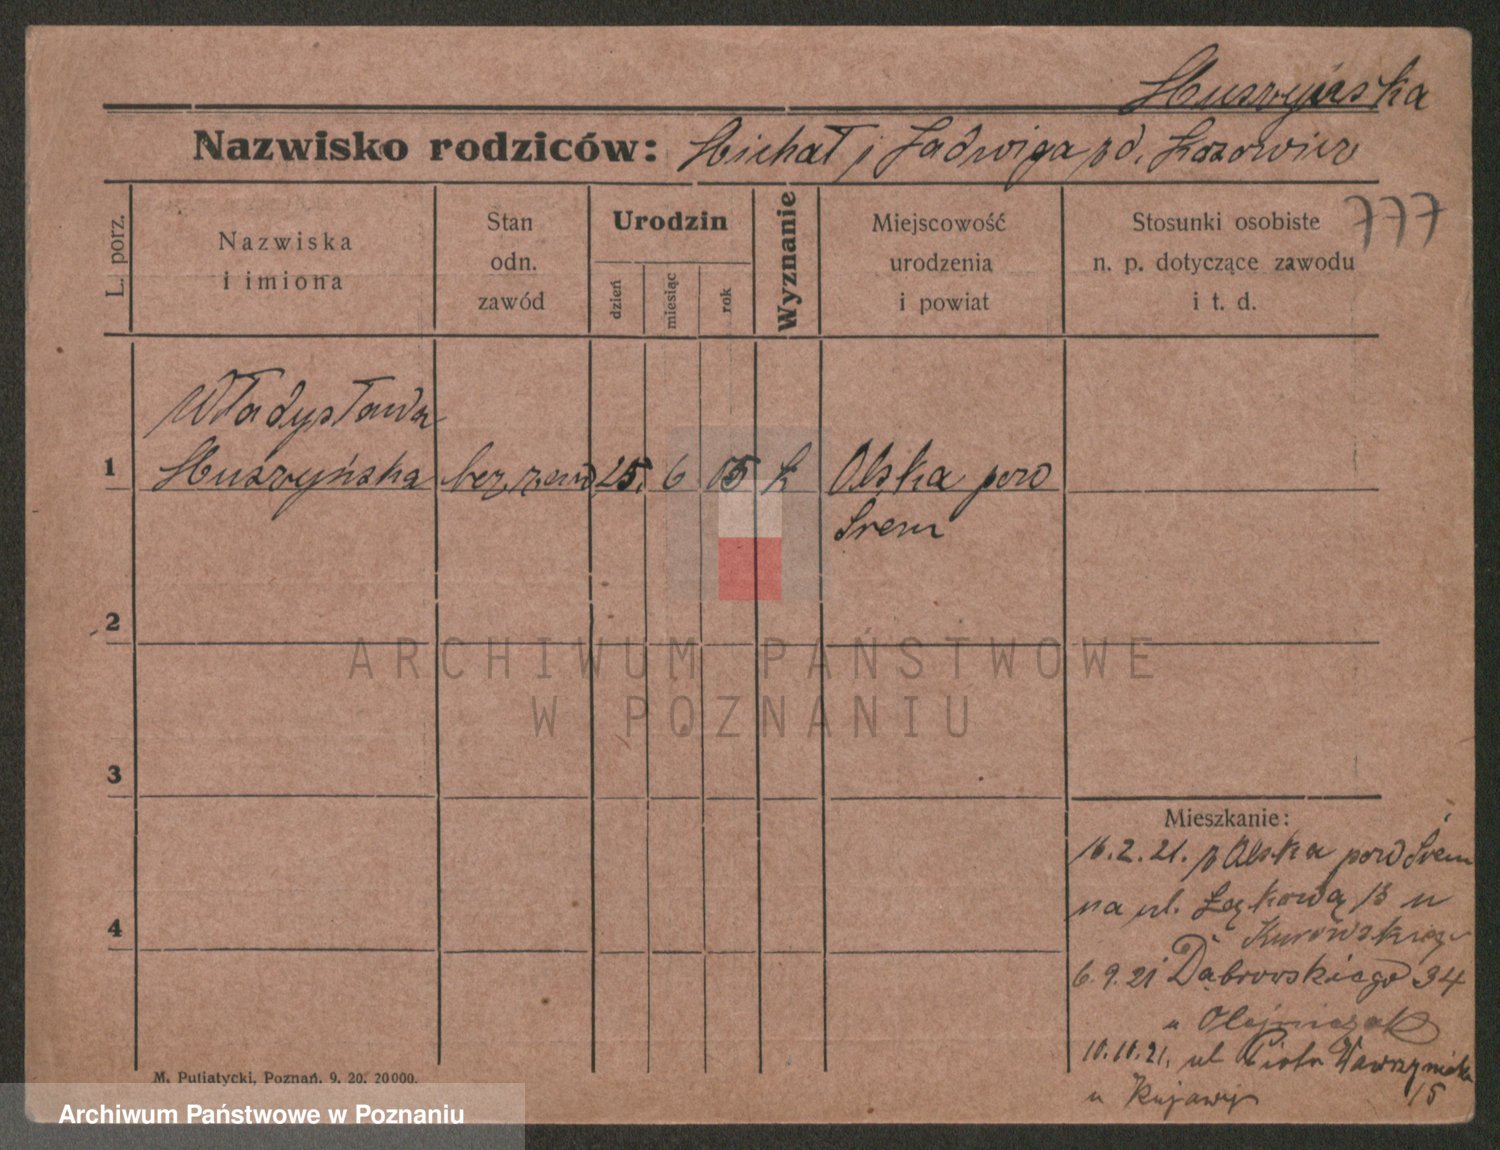 Muszyńska
Nazwisko rodziców: Michał i Jadwiga
777
L. porz.
Nazwiska
i imiona
Stan
odn.
zawód
Urodzin
dzień
miesiąc
rok
Wyznanie
Miejscowość
urodzenia
i powiat
Stosunki osobiste
n. p. dotyczące zawodu
i t. d.
Władysława
1 Muszyńska bez zawo 25. 6 05 k Olska pow
Śrem
2
ARCHIWUM PAŃSTWOWE
W POZNANIU
3
Mieszkanie:
16.2.21. z Olska pow Śrem
na ul. Łąkową 13 u
6.9.21 Dąbrowskiego 34
u Olejniczak
10.10.21. ul Piotra Wawrzyniaka
15
4
M. Putiatycki, Poznań. 9. 20. 20000.
Archiwum Państwowe w Poznaniu